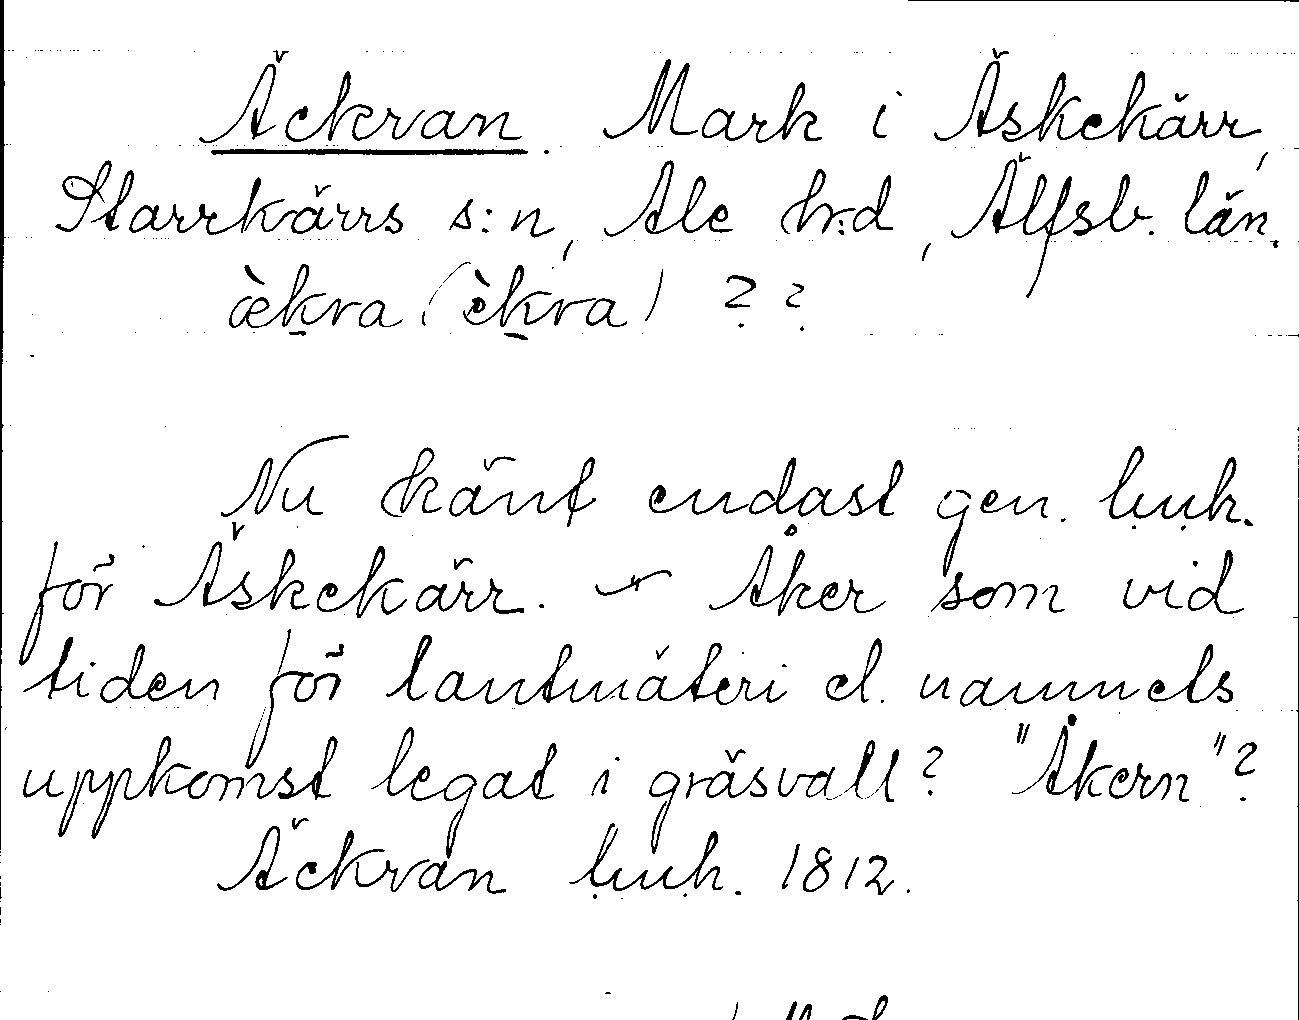 Äckran. Mark i Äskekärr,
Starrkärrs s:n, Ale h:d, Älfsb. län.
æ̀kra (ὲkra) ? ?
Nu känt endast gen.
för Äskekärr. — Åker som vid
tiden för lantmäteri el. namnets
uppkomst legat i gräsvall? "Åkern"?
Äckran 1812.